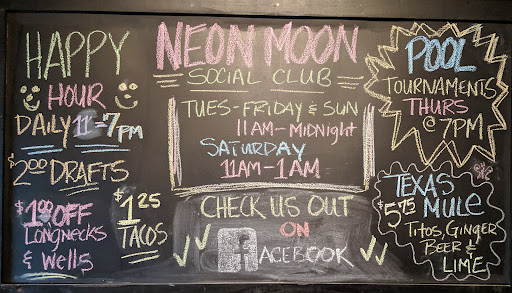 HAPPY
HOUR
DAILY 11-7PM
$2.00 DRAFTS
$1.00 OFF
LONGNECKS
& WELLS
$1.25
TACOS
NEON MOON
SOCIAL CLUB
TUES-FRIDAY & SUN
11AM-MIDNIGHT
SATURDAY
11AM-1AM
CHECK US OUT
ON
FACEBOOK
POOL
TOURNAMENTS
THURS
@ 7PM
TEXAS
MULE
$5.75
TITOS, GINGER
BEER &
LIME